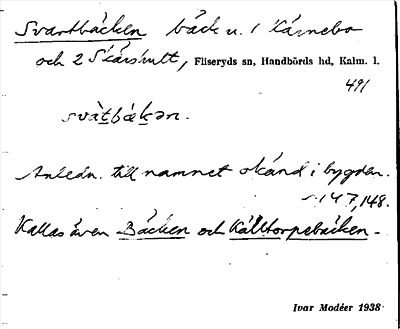 Svartbäcken bäck u. 1 Kärnebo
och 2 Skärshult, Fliseryds sn, Handbörds hd, Kalm. l.
491
svàt̲bäk̲ən.
Anledn. till namnet okänd i bygden.
147,148.
Kallas även Bäcken och Källtorpebäcken.
Ivar Modéer 1938